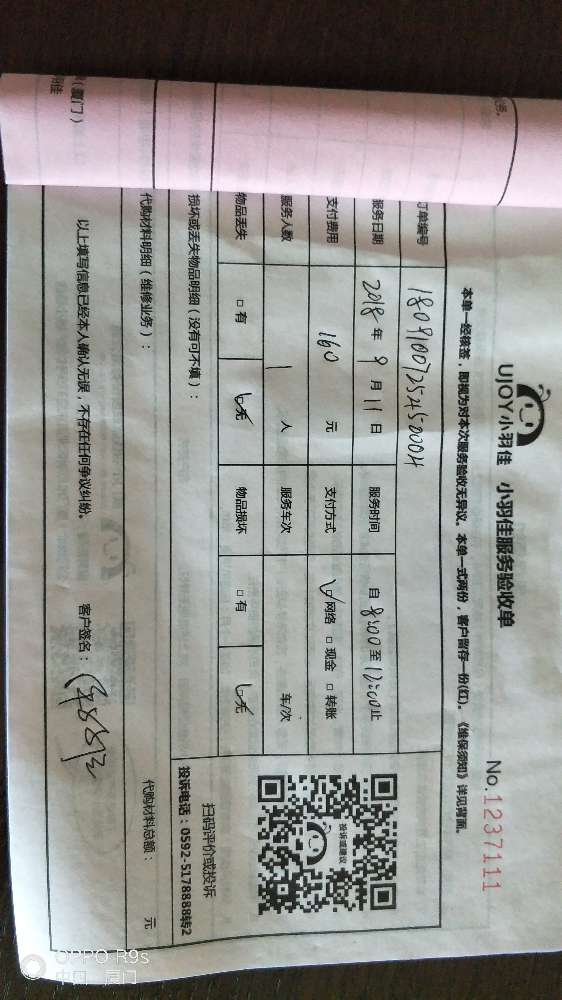 UJOY小羽佳 小羽佳服务验收单
No.1237111
本单一经核签，即视为对本次服务验收无异议。本单一式两份，客户留存一份(红)。《维保须知》详见背面。
订单编号 1809100725450004
服务日期 2018年9月11日 服务时间 自8:00至12:00止
支付费用 160元 支付方式 ☑网络 □现金 □转账
服务人数 1人 服务车次 车/次
物品丢失 □有 ☑无 物品损坏 □有 ☑无
损坏或丢失物品明细（没有可不填）：
扫码评价或投诉
投诉电话：0592-5178888转2
投诉或建议
代购材料明细（维修业务）： 代购材料总额： 元
以上填写信息已经本人确认无误，不存在任何争议纠纷。 客户签名：
(厦门)
OPPO R9s
中国·厦门